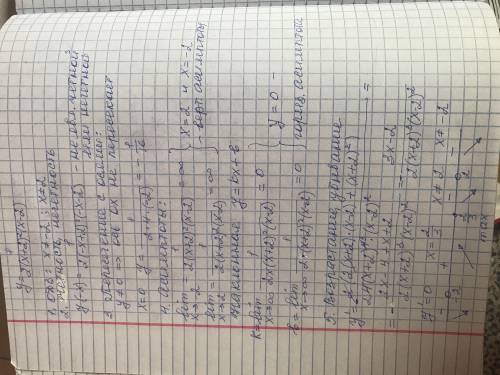 y = 1/(2(x+2)²(x-2))
1. ОДЗ: x ≠ -2 ; x ≠ 2
2. Четность, нечетность
y(-x) = 1/(2(-x+2)²(-x-2)) - не явл. четной или нечетной
3. пересечение с осями:
y ≠ 0 => ось ox не пересекает
x=0 y = 1/(2·4·(-2)) = -1/16
4. Асимптоты:
lim x→-2 1/(2(x+2)²(x-2)) = ∞
lim x→2 1/(2(x+2)²(x-2)) = ∞
} x=2 и x=-2 - верт. асимптоты
Наклонные y = kx + b
k = lim x→∞ 1/(2x(x+2)²(x-2)) = 0
b = lim x→∞ 1/(2(x+2)²(x-2)) = 0
} y = 0 - гориз. асимптота
5. Возрастание, убывание
= - (2x-4+x+2)/(2(x+2)³(x-2)²) = - (3x-2)/(2(x+2)³(x-2)²)
y' = 0 x = 2/3 x ≠ 2 x ≠ -2
- + - -
-2 2/3 2
max